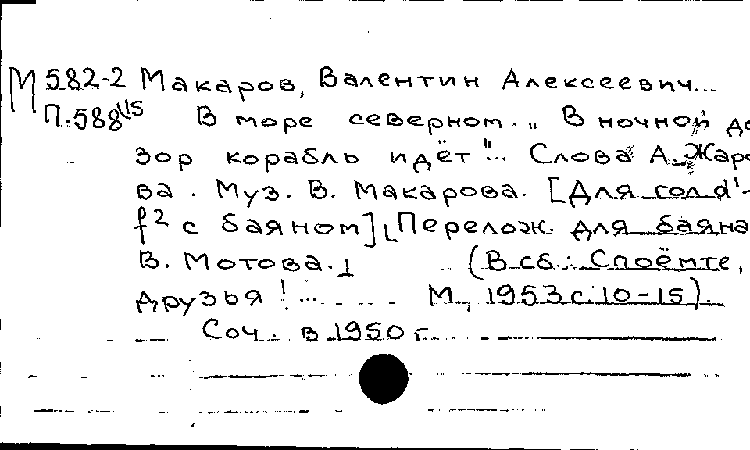 М 582-2 Макаров, Валентин Алексеевич...
П.588 В море северном. „В ночной до
зор корабль идёт"... Слова А. Жаро
ва. Муз. В. Макарова. [Для гол d'-
f² с баяном] [Перелож. для баяна
В. Мотова.] (В сб.: Споёмте,
друзья!... М., 1953 с. 10-15).
Соч. в 1950 г.